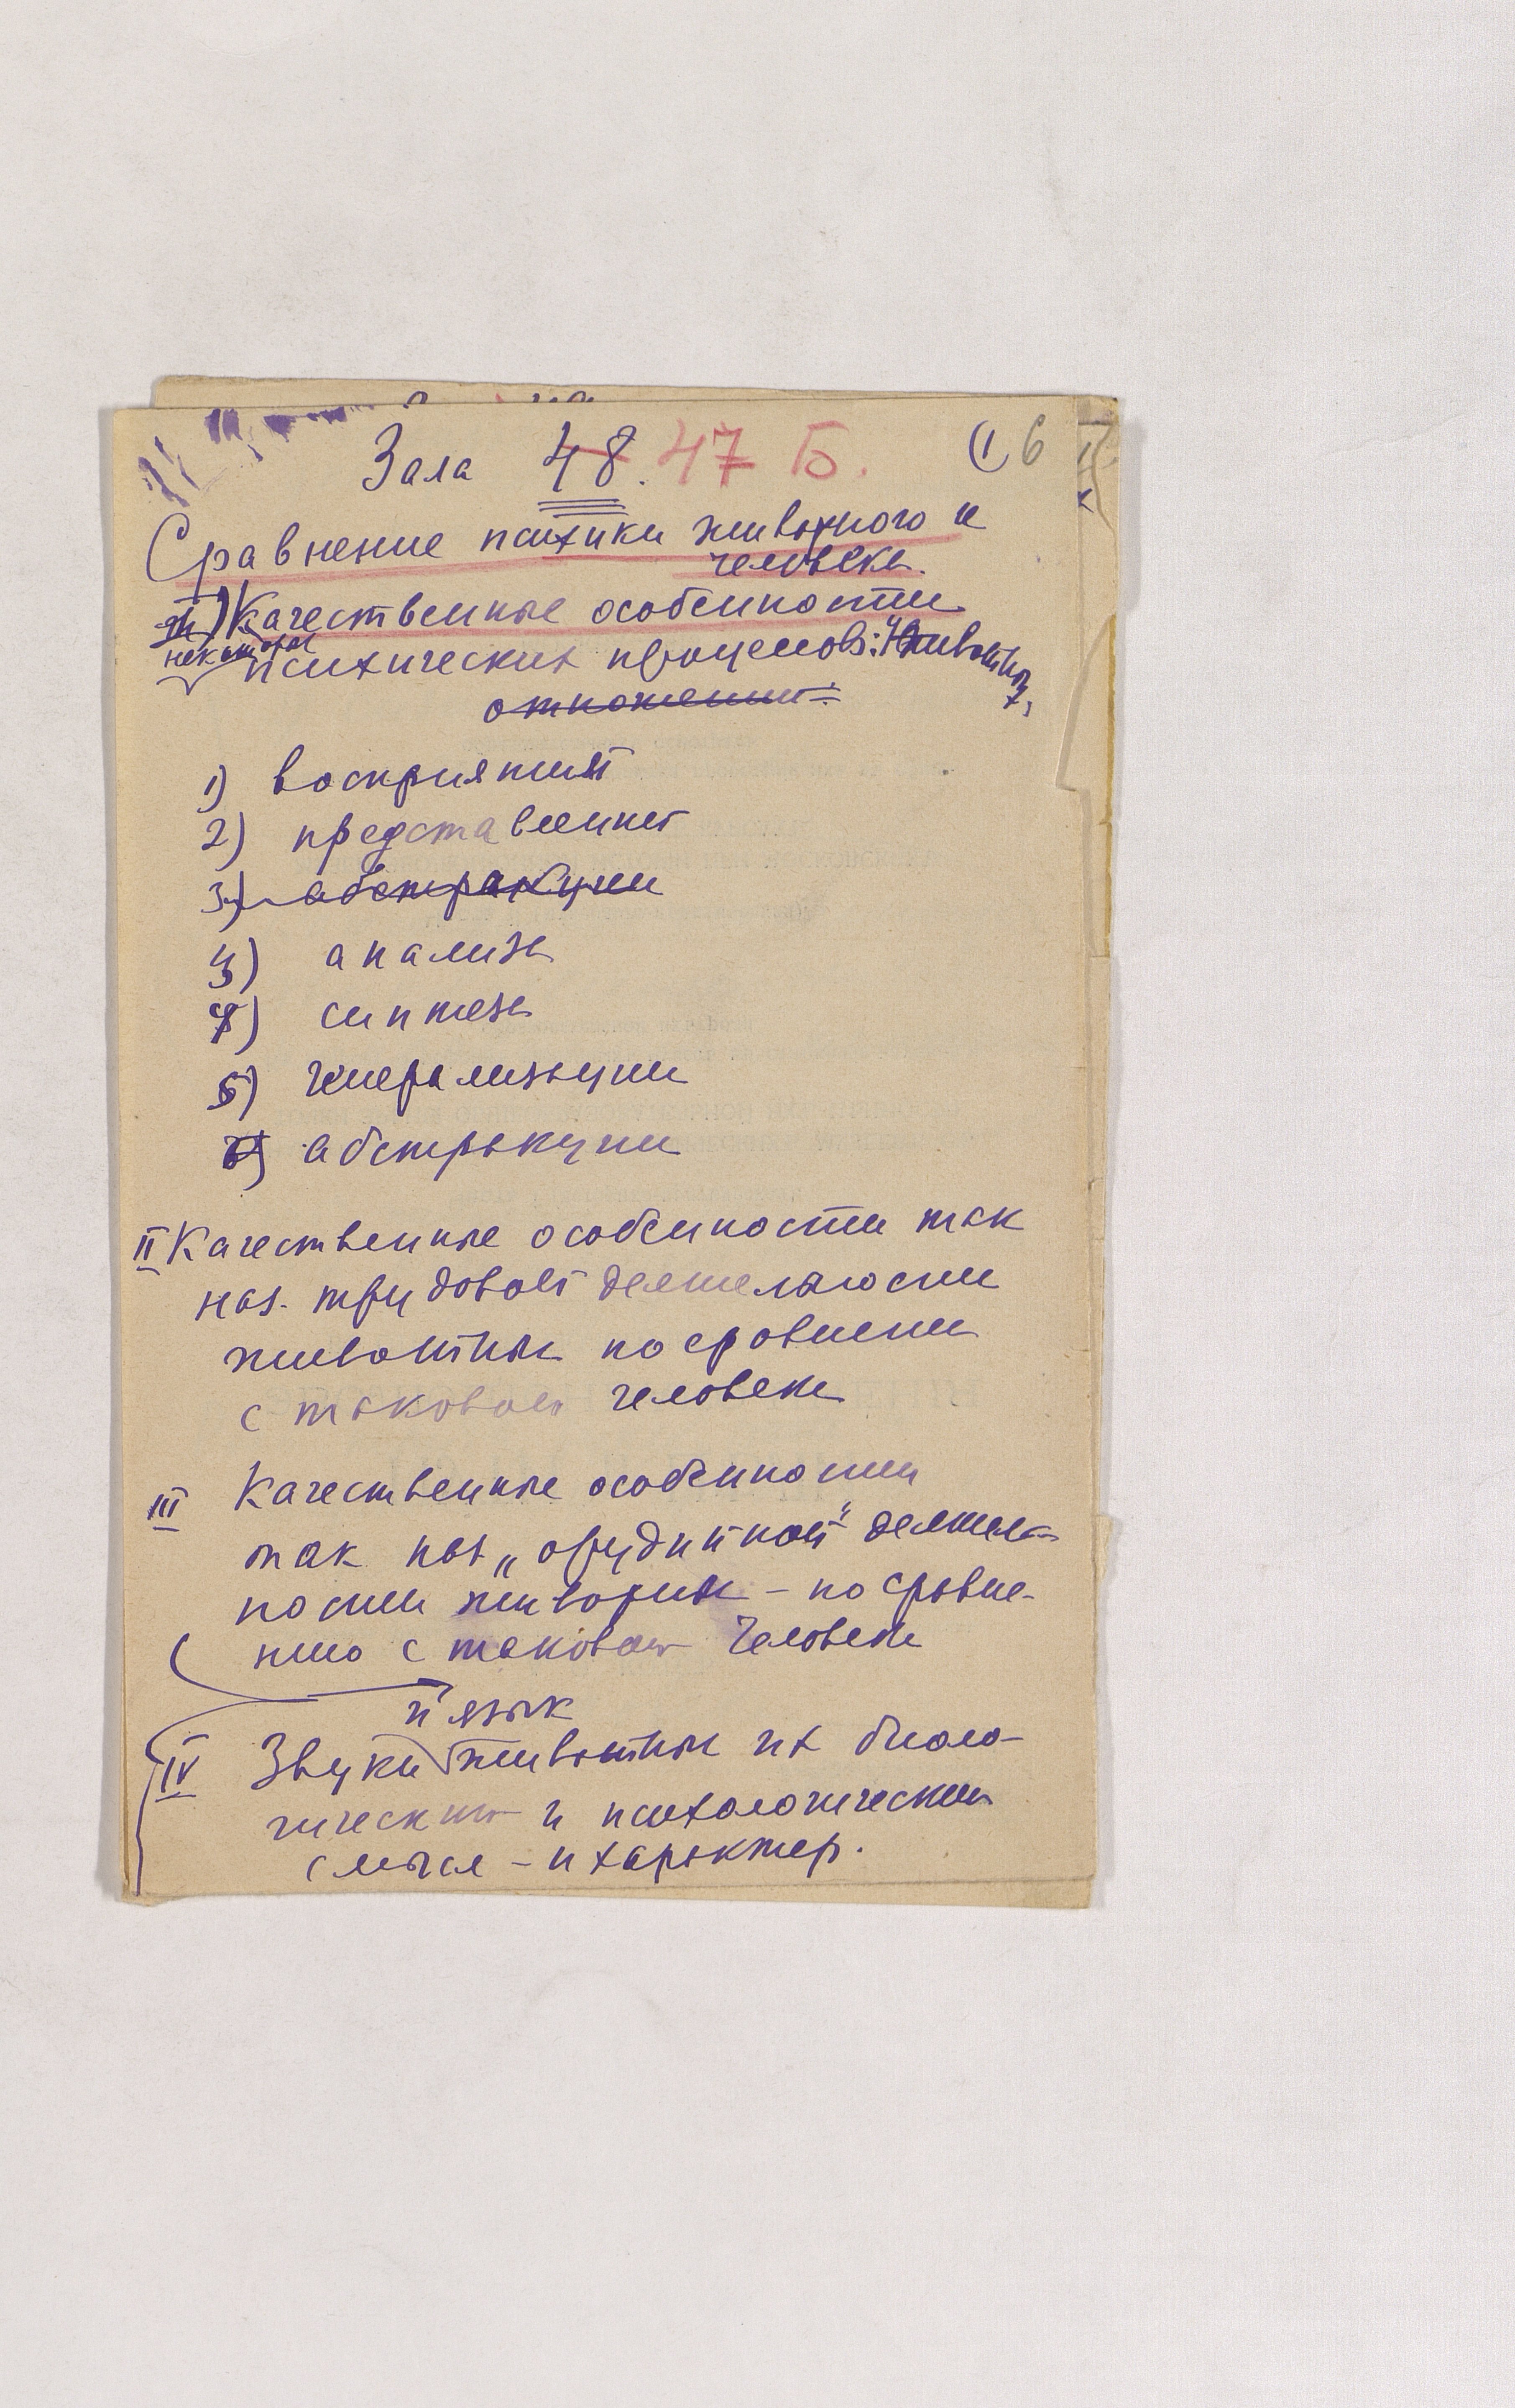 Зала 48. 47 Б. (1 6
Сравнение психики животного и
человека.
I) Качественные особенности
некоторых
психических процессов: животных,
отношении:
1) восприятий
2) представлений
3) абстракции
3) анализа
4) синтеза
5) генерализации
6) абстракции
II Качественные особенности так
наз. трудовой деятельности
животных по сравнении
с таковой человека
III Качественные особенности
так наз „орудийной" деятель-
ности животных – по сравне-
нию с таковой человека
и язык
IV Звуки животных их биоло-
гический и психологический
смысл – и характер.